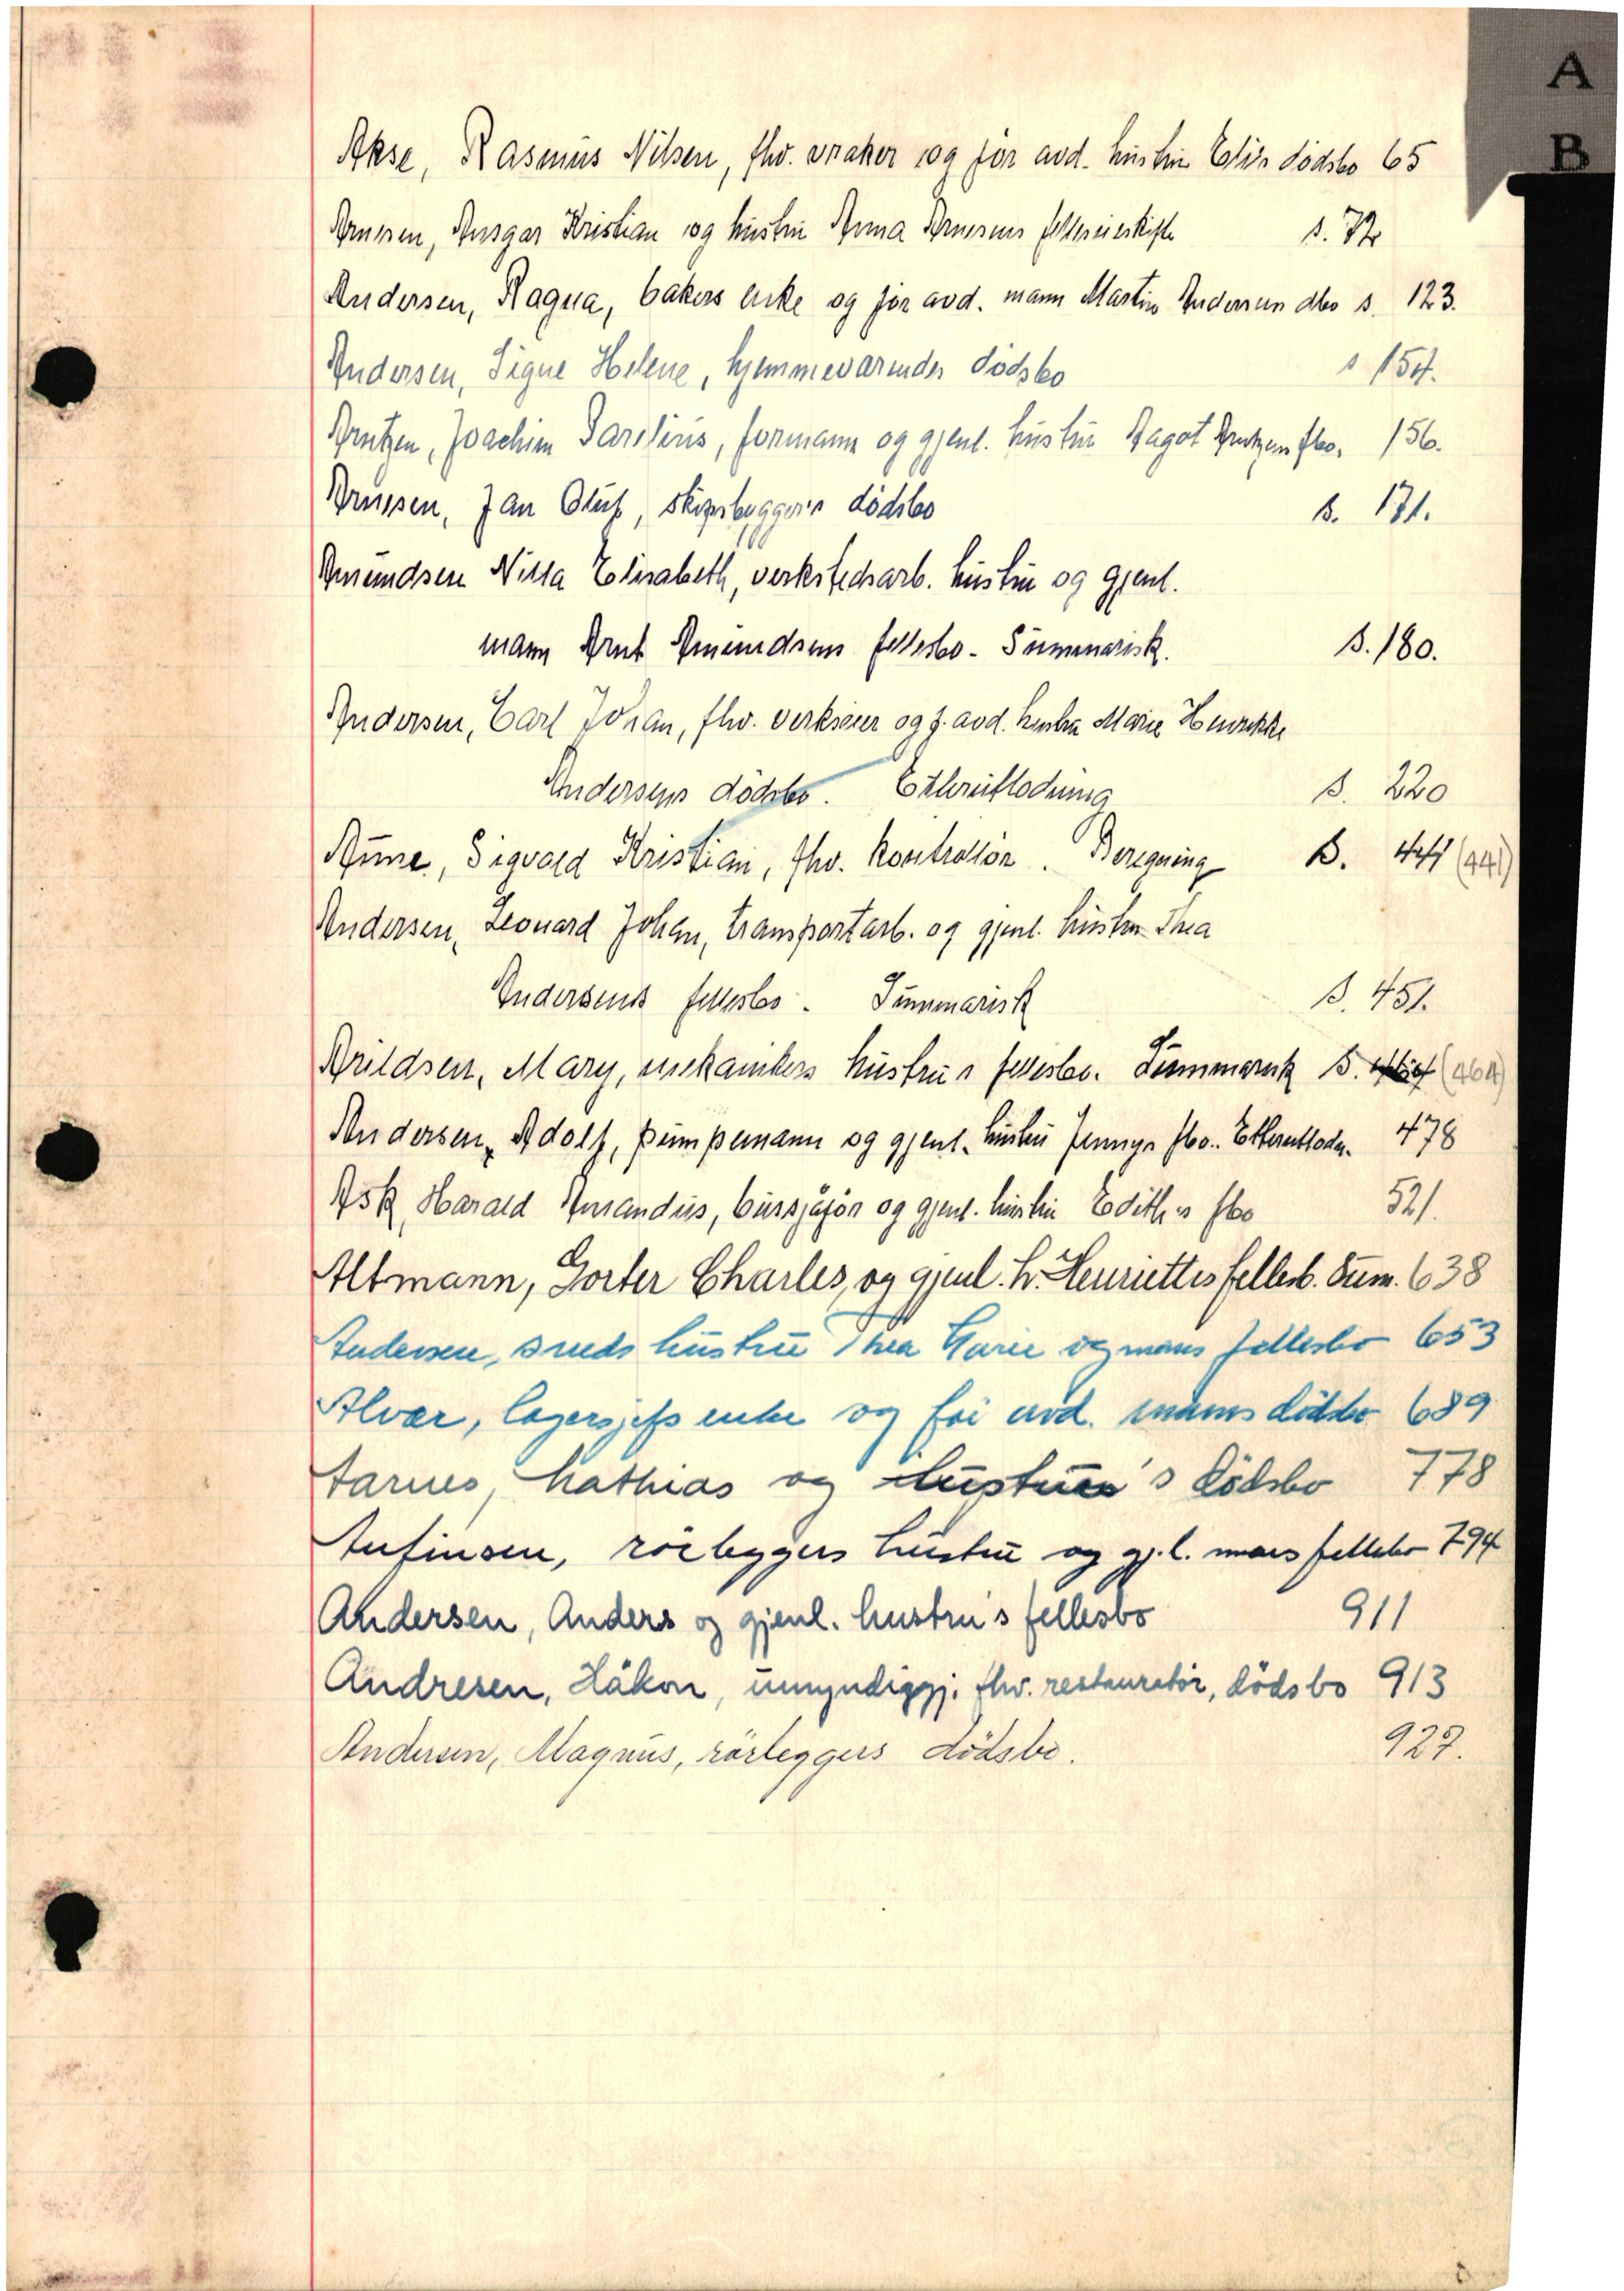 A
B
Akse, Rasmus Nilsen, fhv. vraker og før avd. hustru Elis dødsbo 65
Arnesen, Ansgar Kristian og hustru Anna Arnesens felleseieskifte s. 72
Andersen, Ragna, bakers enke og før avd. mann Martin Andersen dbo s. 123.
Andersen, Signe Helene, hjemmeværendes dödsbo s 154.
Arntzen, Joachim Sarelius, formann og gjenl. hustru Aagot Arntzens fbo. 156.
Arnesen, Jan Oluf, skipsbygger's dödsbo s. 171.
Amundsen Nilla Elisabeth, verkstedsarb. hustru og gjenl.
mann Arnt Amundsens fellesbo - Summarisk. s. 180.
Andersen, Carl Johan, fhv. verkseier og f. avd. hustru Marie Henrikke
Andersens dödsbo. Etterutlodning s. 220
Aune, Sigvald Kristian, fhv. kontrollör. Beregning s. 441 (441)
Andersen, Leonard Johan, transportarb. og gjenl. hustru Thea
Andersens fellesbo. Summarisk s. 451.
Arildsen, Mary, mekanikers hustru s fellesbo. Summarisk s. (464)
Andersen, Adolf, pumpemann og gjenl. hustru Jennys fbo. Etterutlodn. 478
Ask, Harald Amandus, bussjåför og gjenl. hustru Edith s fbo 521.
Altmann, Gorter Charles, og gjenl. h. Henriettes fellesb. Sum. 638
Andersen, smeds hustru Thea Marie og manns fellesbo 653
Alvær, lagersjefs enke og før avd. manns dödsbo 689
Aarnes, Mathias og hustru's dödsbo 778
Anfinsen, rörleggers hustru og gj.l. manns fellesbo 794
Andersen, Anders og gjenl. hustru's fellesbo 911
Andresen, Håkon, umyndiggj. fhv. restauratör, dödsbo 913
Andersen, Magnus, rörleggers dödsbo. 927.